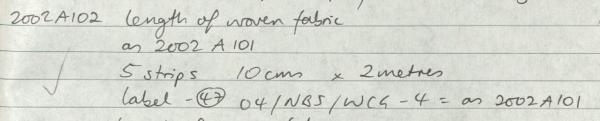 2002A102 length of woven fabric
as 2002 A 101
5 strips 10 cms x 2 metres
label - 47 04/NBS/WCG - 4 = as 2002A101